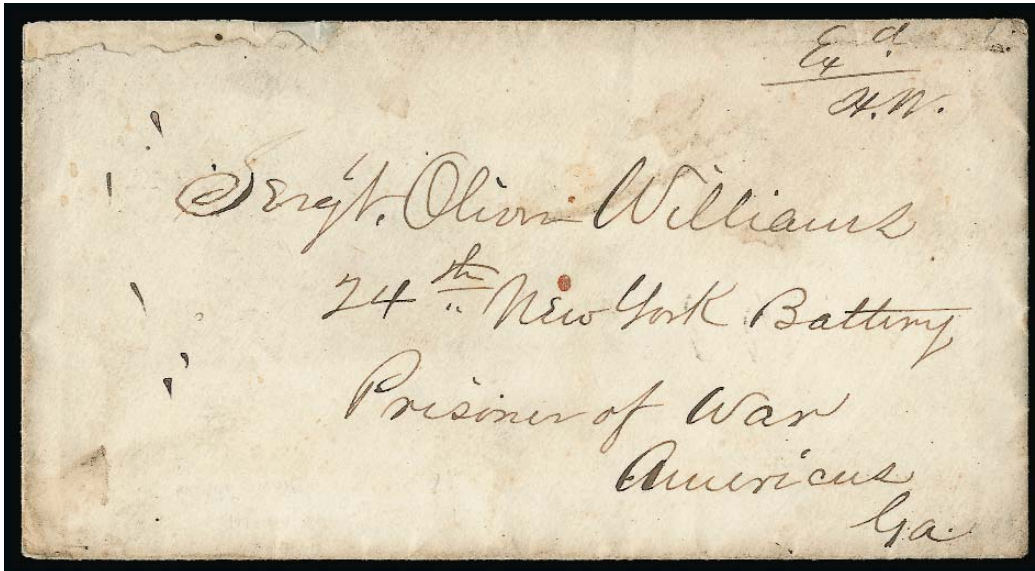 Ex^d
H.W.
Sergt. Oliver Williams
24th New York Battery
Prisoner of War
Americus
Ga.